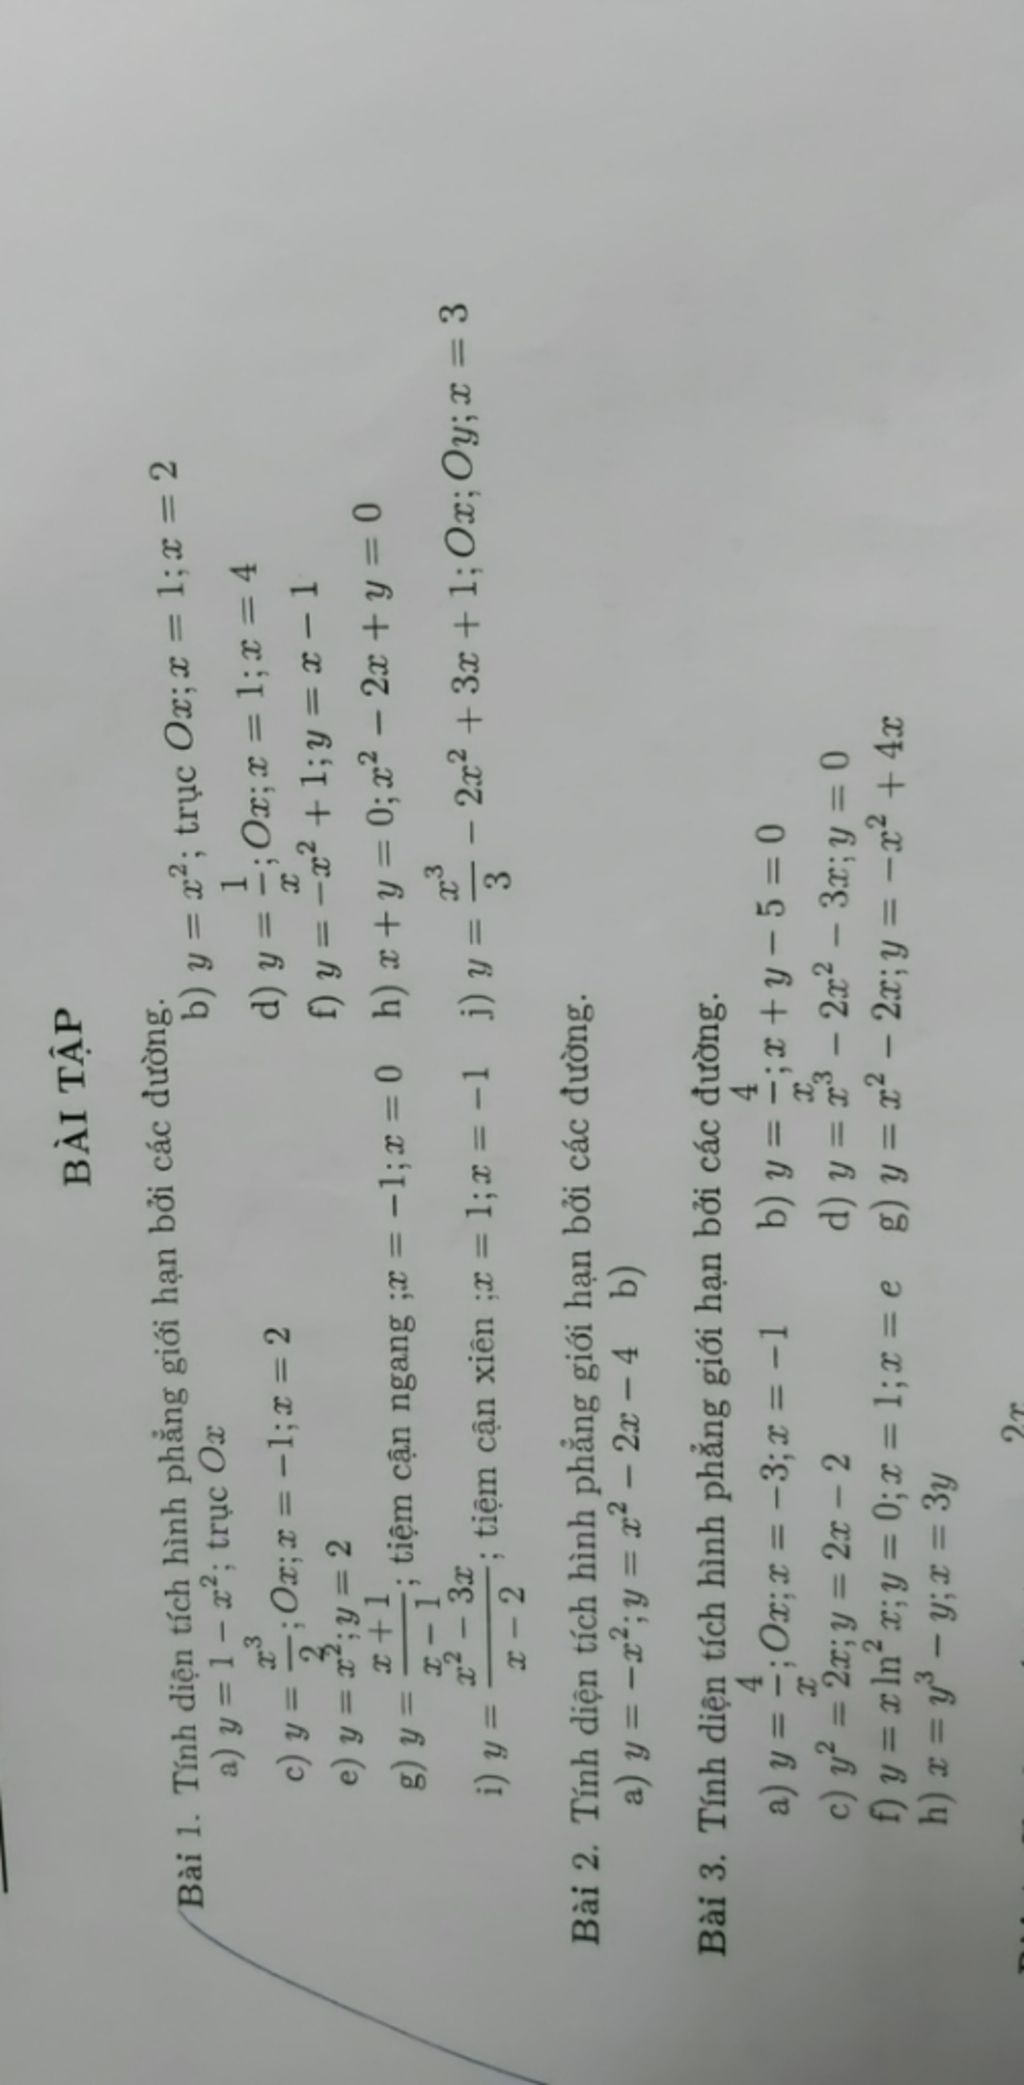 BÀI TẬP
Bài 1. Tính diện tích hình phẳng giới hạn bởi các đường.
a) y = 1 − x²; trục Ox b) y = x²; trục Ox; x = 1; x = 2
c) y = x³/2; Ox; x = −1; x = 2 d) y = 1/x; Ox; x = 1; x = 4
e) y = x²; y = 2 f) y = −x² + 1; y = x − 1
g) y = (x + 1)/(x − 1); tiệm cận ngang ;x = −1; x = 0 h) x + y = 0; x² − 2x + y = 0
i) y = (x² − 3x)/(x − 2); tiệm cận xiên ;x = 1; x = −1 j) y = x³/3 − 2x² + 3x + 1; Ox; Oy; x = 3
Bài 2. Tính diện tích hình phẳng giới hạn bởi các đường.
a) y = −x²; y = x² − 2x − 4 b)
Bài 3. Tính diện tích hình phẳng giới hạn bởi các đường.
a) y = 4/x; Ox; x = −3; x = −1 b) y = 4/x; x + y − 5 = 0
c) y² = 2x; y = 2x − 2 d) y = x³ − 2x² − 3x; y = 0
f) y = x ln² x; y = 0; x = 1; x = e g) y = x² − 2x; y = −x² + 4x
h) x = y³ − y; x = 3y
2x